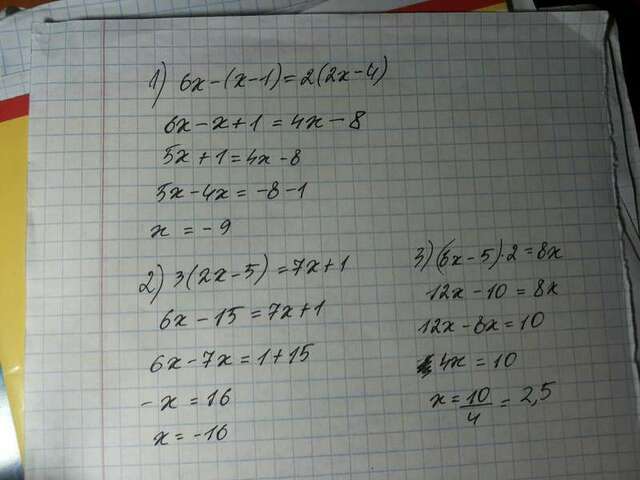 1) 6x-(x-1)=2(2x-4)
6x-x+1=4x-8
5x+1=4x-8
5x-4x=-8-1
x=-9
2) 3(2x-5)=7x+1
6x-15=7x+1
6x-7x=1+15
-x=16
x=-16
3) (6x-5)·2=8x
12x-10=8x
12x-8x=10
4x=10
x=10/4=2,5